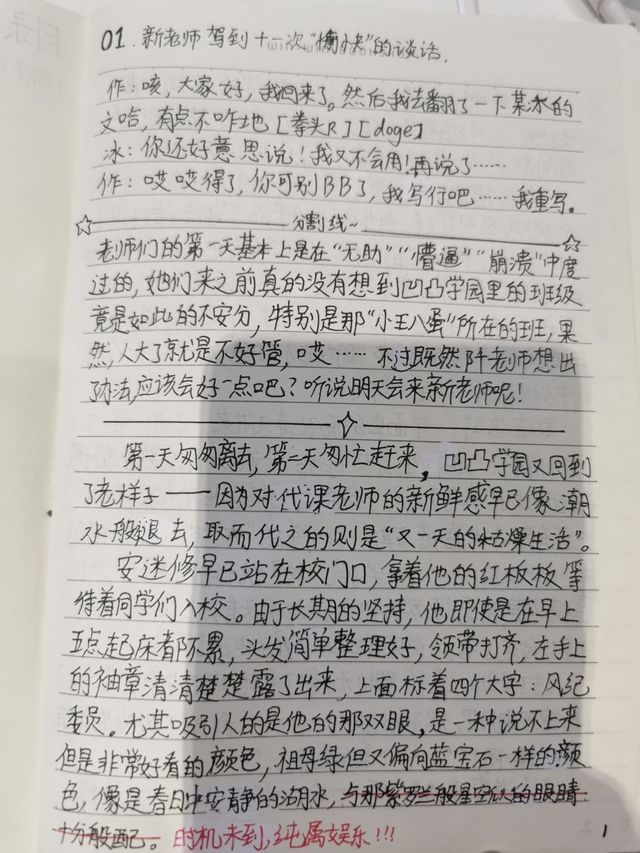 01. 新老师驾到 十一次“愉快”的谈话.
作：咳，大家好，我回来了。然后我去翻了一下某冰的
文哈，有点不咋地 [拳头R] [doge]
冰：你还好意思说！我又不会用！再说了……
作：哎哎得了，你可别BB了，我写行吧……我重写。
分割线~
老师们的第一天基本上是在“无助”“懵逼”“崩溃”中度
过的，她们来之前真的没有想到凹凸学园里的班级
竟是如此的不安分，特别是那“小王八蛋”所在的班，果
然，人大了就是不好管，哎…… 不过既然阡老师想出
了办法，应该会好一点吧？听说明天会来新老师呢！
第一天匆匆离去，第二天匆忙赶来，凹凸学园又回到
了老样子——因为对代课老师的新鲜感早已像潮
水般褪去，取而代之的则是“又一天的枯燥生活”。
安迷修早已站在校门口，拿着他的红板板等
待着同学们入校。由于长期的坚持，他即使是在早上
五点起床都不累，头发简单整理好，领带打齐，左手上
的袖章清清楚楚露了出来，上面标着四个大字：风纪
委员。尤其吸引人的是他的那双眼，是一种说不上来
但是非常好看的颜色，祖母绿但又偏向蓝宝石一样的颜
色，像是春日中安静的湖水，与那紫罗兰般星空似的眼睛
十分般配。时机未到，纯属娱乐!!!
1